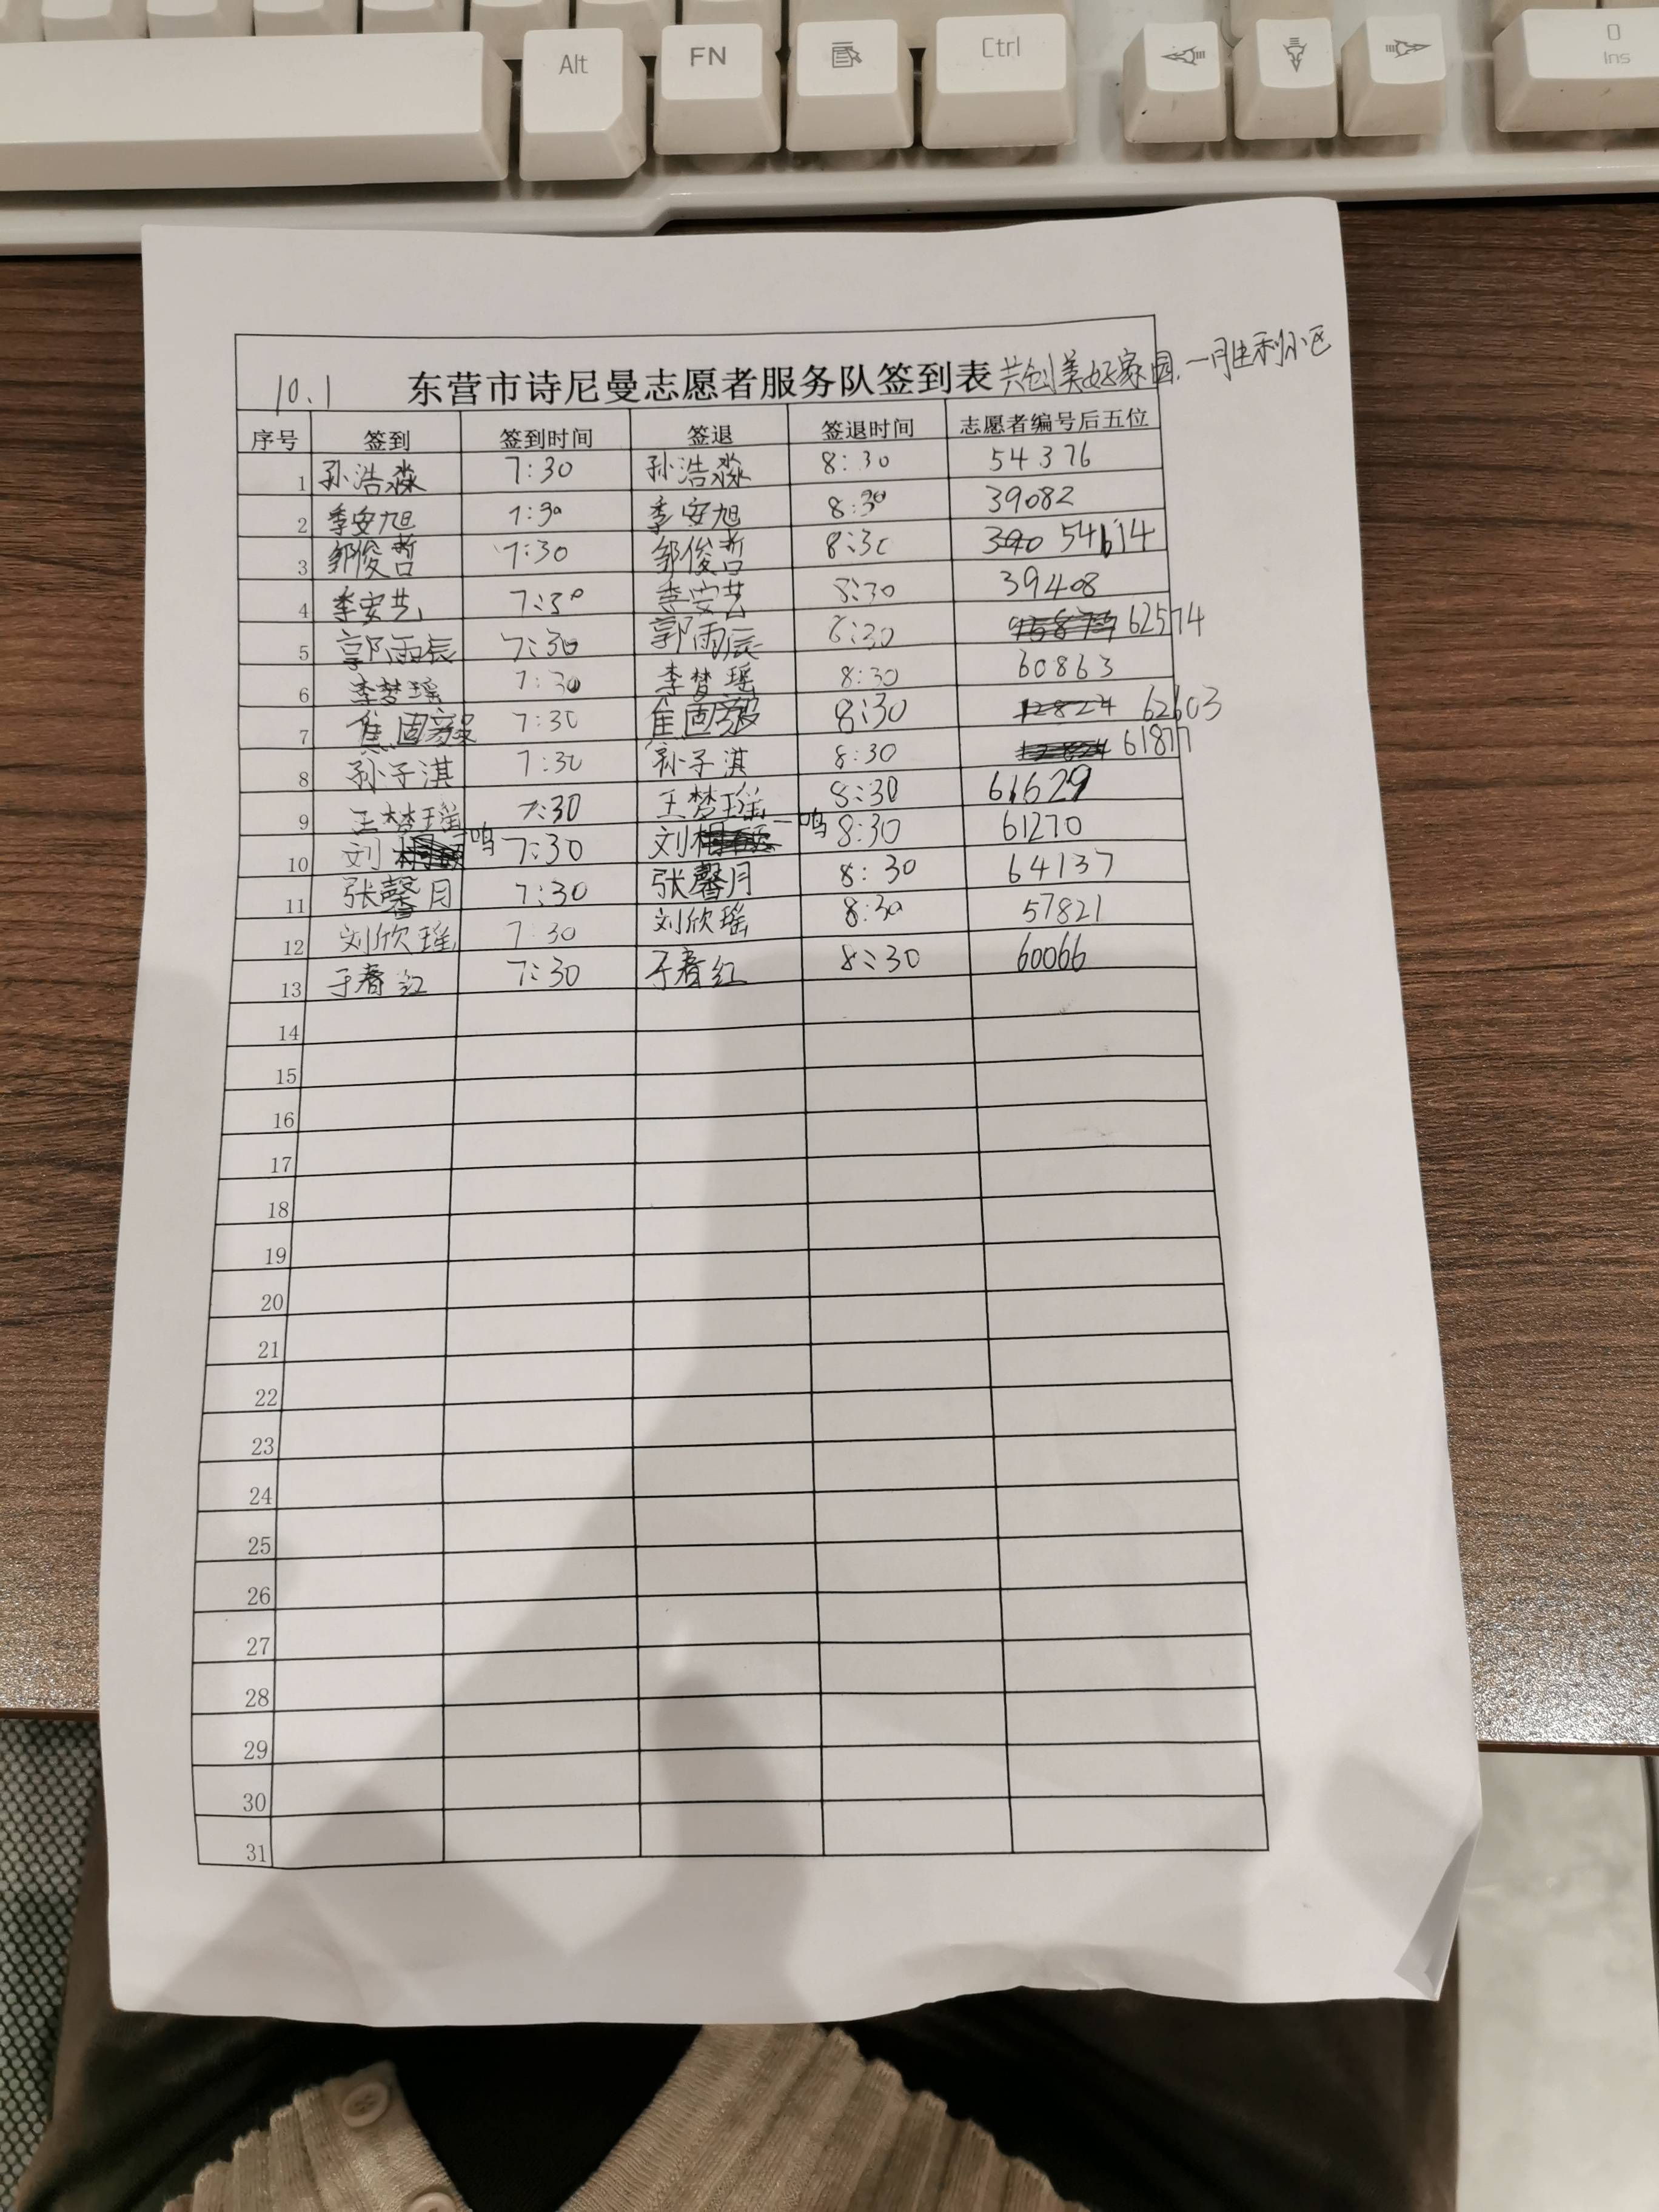 Alt FN Ctrl 0 Ins
10.1 东营市诗尼曼志愿者服务队签到表 共创美好家园.一胜利小区
序号 签到 签到时间 签退 签退时间 志愿者编号后五位
1 孙浩淼 7:30 孙浩淼 8:30 54376
2 季安旭 7:30 季安旭 8:30 39082
3 邹俊哲 7:30 邹俊哲 8:30 54614
4 季安艺 7:30 季安艺 8:30 39408
5 郭雨辰 7:30 郭雨辰 8:30 62574
6 李梦瑶 7:30 李梦瑶 8:30 60863
7 焦固毅 7:30 焦固毅 8:30 62603
8 孙子淇 7:30 孙子淇 8:30 61877
9 王梦瑶 7:30 王梦瑶 8:30 61629
10 刘一鸣 7:30 刘一鸣 8:30 61270
11 张馨月 7:30 张馨月 8:30 64137
12 刘欣瑶 7:30 刘欣瑶 8:30 57821
13 于春红 7:30 于春红 8:30 60066
14
15
16
17
18
19
20
21
22
23
24
25
26
27
28
29
30
31